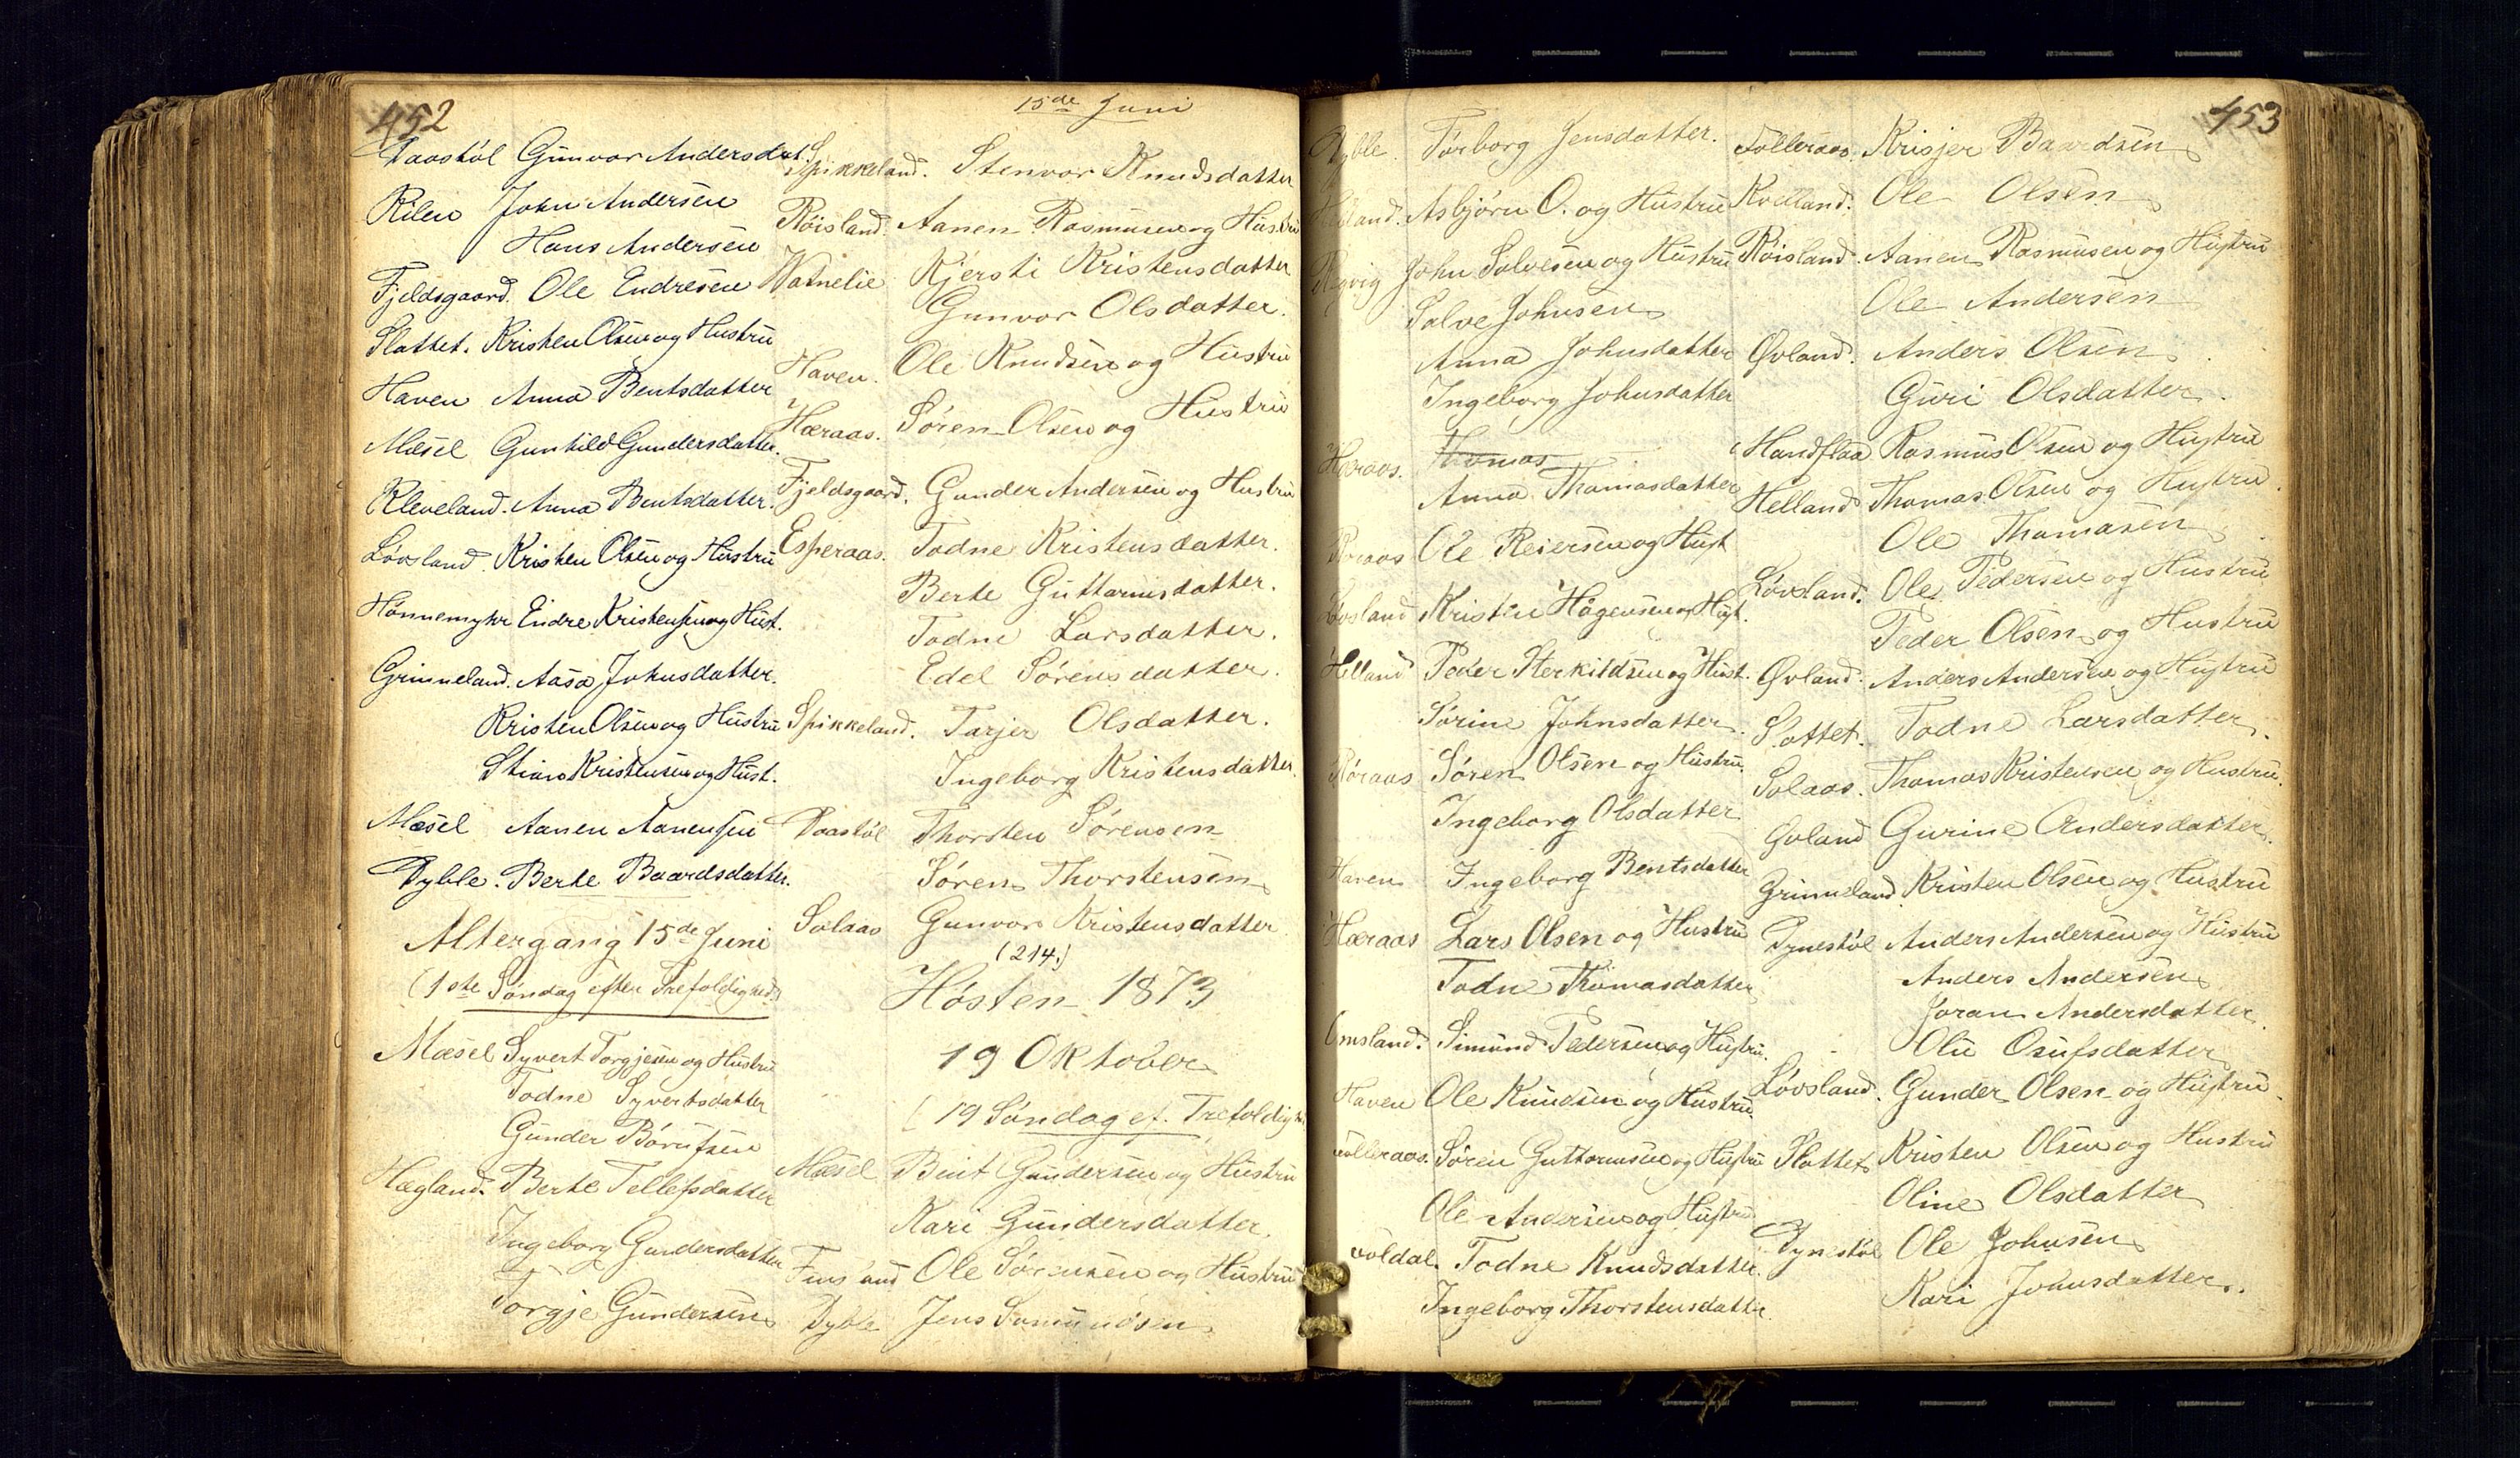 452
Daastöl Gunvor Andersdat.
Rilen John Andersen
Hans Andersen
Fjeldsgaard. Ole Endresen
Slottet. Kristen Olsen og Hustru
Haven Anna Bentsdatter
Mæsel Gunhild Gundersdatter.
Kleveland. Anna Bentsdatter.
Lövsland. Kristen Olsen og Hustru
Hönnemyhr Endre Kristensen og Hust.
Grimeland. Aasa Johnsdatter.
Kristen Olsen og Hustru
Stian Kristensen og Hust.
Mæsel Aanen Aanensen
Dyble. Berte Baardsdatter.
Altergang 15de Juni
(1ste Söndag efter Trefoldighed)
Mæsel Syvert Torgjesen og Hustru
Todne Syvertsdatter
Gunder Börufsen
Hægland. Berte Tellefsdatter
Ingeborg Gundersdatter
Torgje Gundersen
15de Juni
Spikkeland. Stenvor Knudsdatter
Röisland. Aanen Rasmusen og Hustru
Vatnelie Kjersti Kristensdatter
Gunvor Olsdatter.
Haven. Ole Knudsen og Hustru
Hæraas. Sören Olsen og Hustru
Fjeldsgaard. Gunder Andersen og Hustru
Esperaas. Todne Kristensdatter.
Berte Guttormsdatter.
Todne Larsdatter.
Edel Sörensdatter.
Spikkeland. Tarjer Olsdatter.
Ingeborg Kristensdatter.
Daastöl Thorsten Sörensen
Sören Thorstensen
Solaas Gunvor Kristensdatter
(214.)
Hösten 1873
19 Oktober
(19 Söndag ef. Trefoldigh
Mæsel Bent Gundersen og Hustru
Kari Gundersdatter.
Finsland Ole Sörensen og Hustru
Dyble Jens
453
Dyble. Torborg Jensdatter.
Asbjörn O. og Hustru
John Salvesen og Hustru
Salve Johnsen
Anna Johnsdatter
Ingeborg Johnsdatter
Hæraas. Thomas
Anna Thomasdatter
Roraas Ole Reiersen og Hust
Lövsland Kristen Hågensen og Hust.
Helland Peder Terkildsen og Hust.
Sörine Johnsdatter.
Röraas Sören Olsen og Hustru.
Ingeborg Olsdatter
Haven Ingeborg Bentsdatter
Hæraas Lars Olsen og Hustru
Todne Thomasdatter
Omsland. Simund Pedersen og Hustru.
Haven Ole Knudsen og Hustru.
Sören Guttormsen og Hustru
Ole Andersen og Hustru
Todne Knudsdatter.
Ingeborg Thorstensdatter.
Folleraas. Krisjer Baardsen
Kvelland. Ole Olsen
Röisland. Aanen Rasmusen og Hustru
Ole Andersen
Øvland. Anders Olsen.
Guri Olsdatter.
Handflaa Rasmus Olsen og Hustru
Helland Thomas Olsen og Hustru.
Ole Thomasen
Lövsland. Ole Pedersen og Hustru
Peder Olsen og Hustru
Øvland. Anders Andersen og Hustru
Slottet. Todne Larsdatter.
Solaas. Thomas Kristensen og Hustru.
Øvland Gurine Andersdatter.
Grimeland Kristen Olsen og Hustru
Dynestöl Anders Andersen og Hustru
Anders Andersen
Joran Andersdatter.
Olu Osufsdatter
Lövsland. Gunder Olsen og Hustru.
Slottet Kristen Olsen og Hustru
Oline Olsdatter
Dynestöl Ole Johnsen
Kari Johnsdatter.